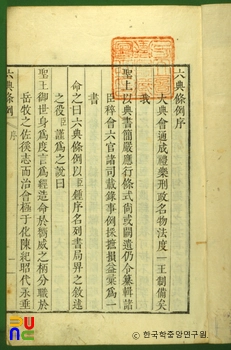 六典條例序
大典會通成禮樂刑政名物法度一王制備矣
我
聖上以典書簡嚴應行條式尚或闕遺仍令纂輯諸
臣稡會六官諸司載錄事例採摭損益彙為一
書
命之曰六典條例以臣鍾序名列書局畀之敘述
之役臣謹為之說曰
聖上御世身為度言為經造令於衡威之柄分職於
岳牧之佐後志而治會極于化陳紀昭代永垂
六典條例
序
한국학중앙연구원